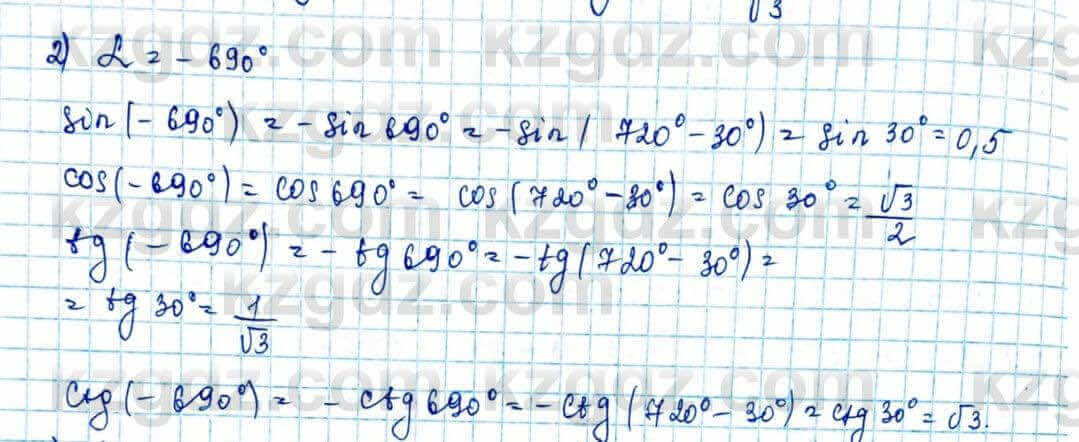 √3
2) α = - 690°
sin(- 690°) = - sin 690° = - sin( 720° - 30°) = sin 30° = 0,5
cos(- 690°) = cos 690° = cos(720° - 30°) = cos 30° = √3/2
tg (- 690°) = - tg 690° = - tg(720° - 30°) =
= tg 30° = 1/√3
ctg (- 690°) = - ctg 690° = - ctg (720° - 30°) = ctg 30° = √3.
kzgdz.com